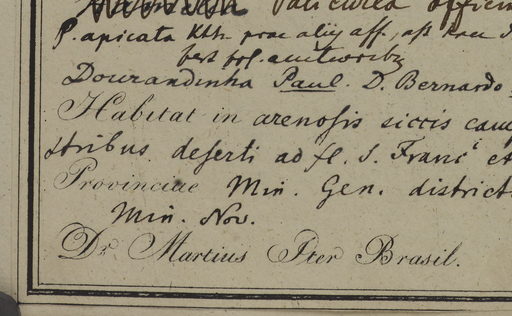 Panicula offici
P. apicata Kth. prae aliis aff., ast
Dourandinha Paul. D. Bernardo
Habitat in arenosis siccis cam
stribus deserti ad fl. S. Franc. et
Provinciae Min. Gen. district
Min. Nov.
Dr. Martius Iter Brasil.